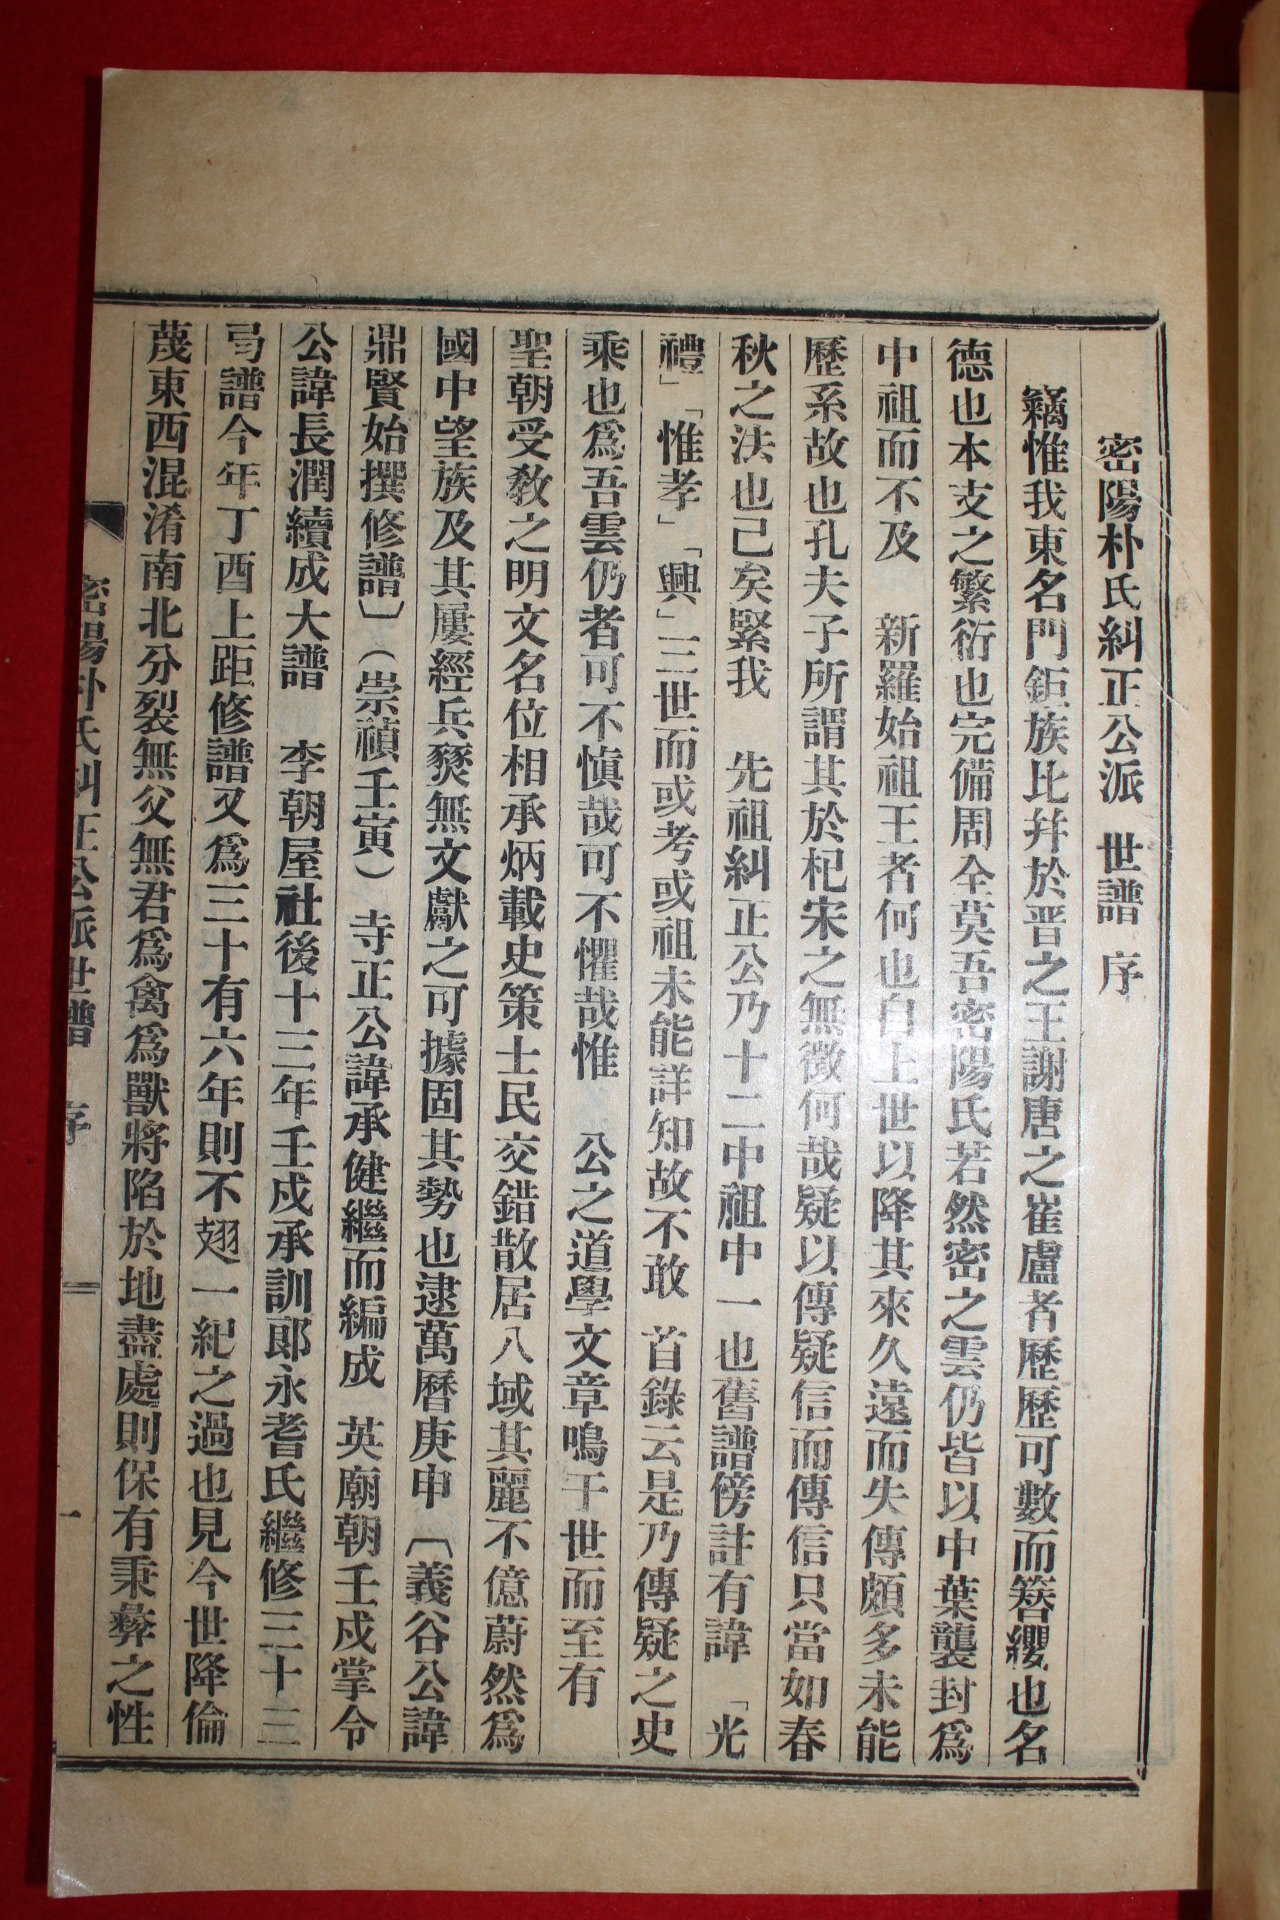 密陽朴氏糾正公派 世譜 序
竊惟我東名門鉅族比幷於晋之王謝唐之崔盧者歷歷可數而簪纓也名
德也本支之繁衍也完備周全莫吾密陽氏若然密之雲仍皆以中葉襲封爲
中祖而不及 新羅始祖王者何也自上世以降其來久遠而失傳頗多未能
歷系故也孔夫子所謂其於杞宋之無徵何哉疑以傳疑信而傳信只當如春
秋之法也已矣緊我 先祖糾正公乃十二中祖中一也舊譜傍註有諱 「光
禮」「惟孝」「興」三世而或考或祖未能詳知故不敢 首錄云是乃傳疑之史
乘也爲吾雲仍者可不愼哉可不懼哉惟 公之道學文章鳴于世而至有
聖朝受敎之明文名位相承炳載史策士民交錯散居八域其麗不億蔚然爲
國中望族及其屢經兵燹無文獻之可據固其勢也逮萬曆庚申〔義谷公諱
鼎賢始撰修譜〕(崇禎壬寅) 寺正公諱承健繼而編成 英廟朝壬戌掌令
公諱長潤續成大譜 李朝屋社後十三年壬戌承訓郞永耆氏繼修三十三
弓譜今年丁酉上距修譜又爲三十有六年則不翅一紀之過也見今世降倫
蔑東西混淆南北分裂無父無君爲禽爲獸將陷於地盡處則保有秉彝之性
密陽朴氏糾正公派世譜 序 一